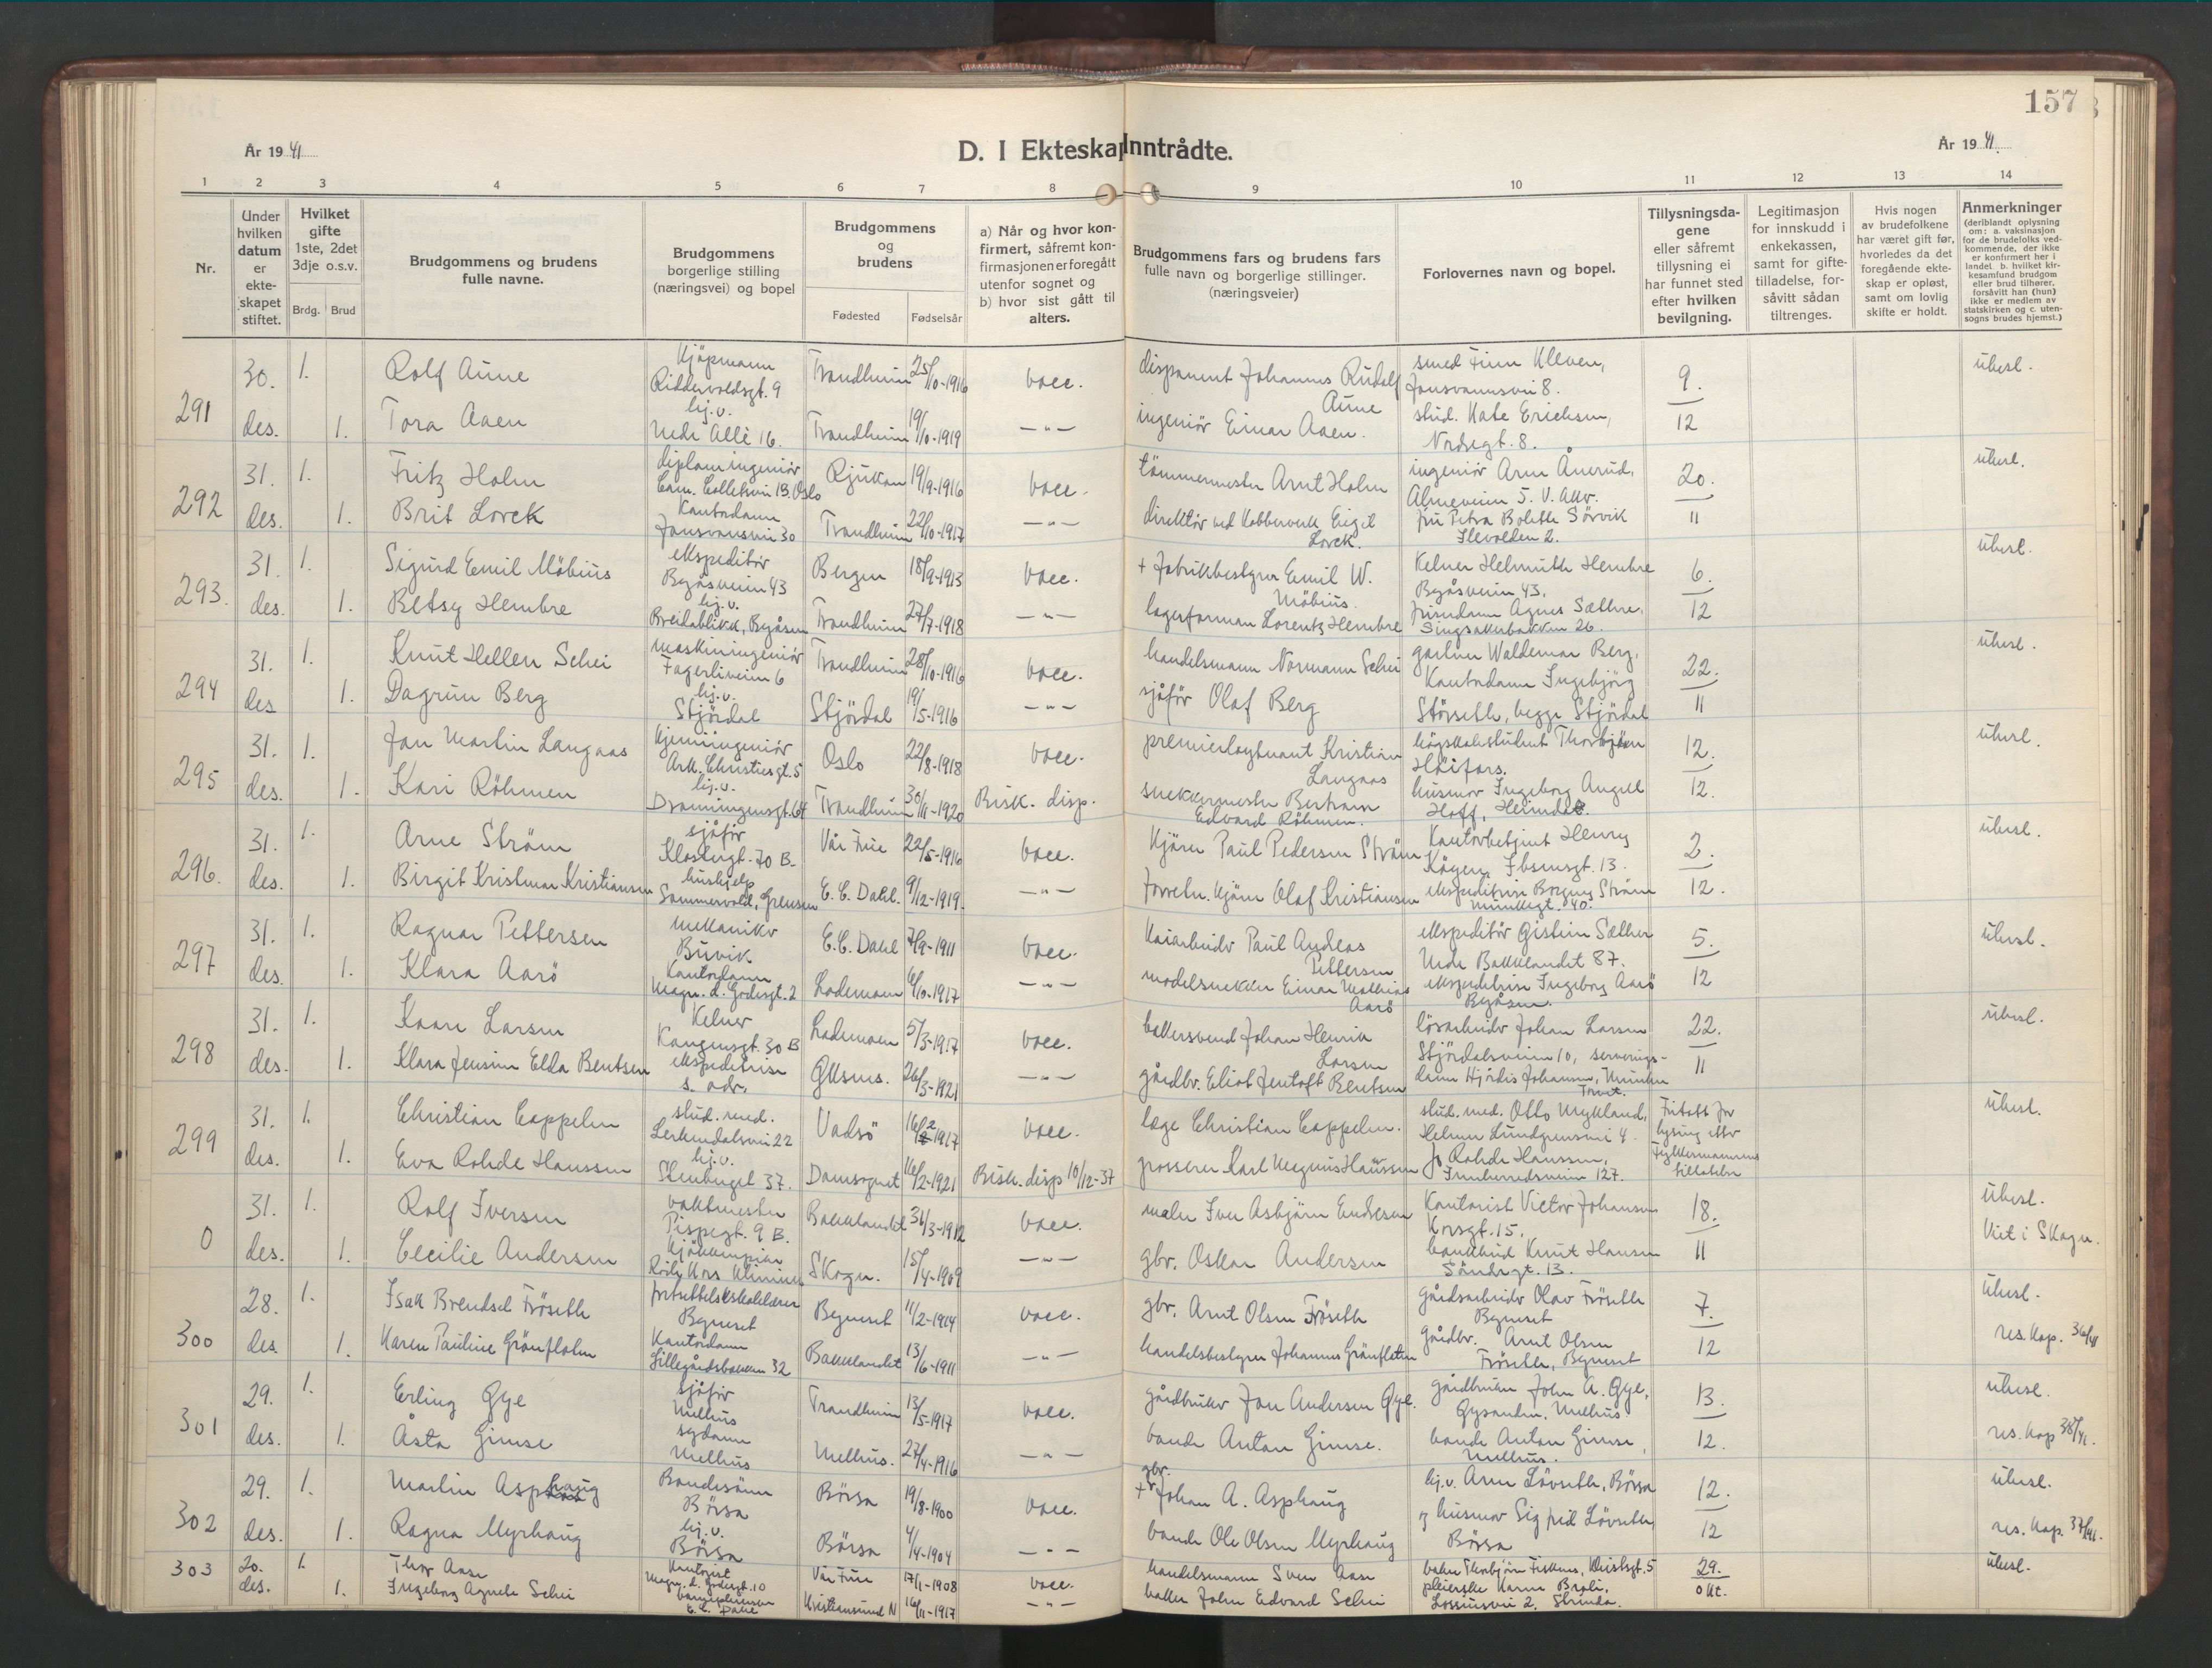 157
År 19 41
D. I Ekteskap Inntrådte.
År 19 41.
1 2 3 4 5 6 7 8 9 10 11 12 13 14
Nr.
Under hvilken datum er ekteskapet stiftet.
Hvilket gifte 1ste, 2det 3dje o.s.v.
Brdg. Brud
Brudgommens og brudens fulle navne.
Brudgommens borgerlige stilling (næringsvei) og bopel
Brudgommens og brudens
Fødested Fødselsår
a) Når og hvor konfirmert, såfremt konfirmasjonen er foregått utenfor sognet og b) hvor sist gått til alters.
Brudgommens fars og brudens fars fulle navn og borgerlige stillinger. (næringsveier)
Forlovernes navn og bopel.
Tillysningsdagene eller såfremt tillysning ei har funnet sted efter hvilken bevilgning.
Legitimasjon for innskudd i enkekassen, samt for giftetilladelse, forsåvitt sådan tiltrenges.
Hvis nogen av brudefolkene har været gift før, hvorledes da det foregående ekteskap er opløst, samt om lovlig skifte er holdt.
Anmerkninger (deriblandt oplysning om: a. vaksinasjon for de brudefolks vedkommende, der ikke er konfirmert her i landet b. hvilket kirkesamfund brudgom eller brud tilhører, forsåvitt han (hun) ikke er medlem av statskirken og c. utensogns brudes hjemst.)
291 30. 1. Rolf Aune Kjøpmann Riddervoldsgt. 9 Trondheim 25/10-1916 vacc. disponent Johannes Rudolf Aune smed Finn Kleven, Jonsvannsvei 8. 9. uberl.
des. 1. Tora Aaen hj.v. Nedre Allè 16. Trondheim 19/10-1919 —"— ingeniør Einar Aaen. stud. Kate Erichsen, Nordregt. 8. 12
292 31. 1. Fritz Holm diplomingeniør Cam. Colletsvei 13. Oslo Rjukan 19/9-1916 vacc. tømmermester Arnt Holm ingeniør Arne Ånerud, Almeveien 5. V. Akv. 20. uberl.
des. 1. Brit Lorck Kontordame Jonsvansvei 30 Trondheim 22/10-1917 —"— direktør ved Kobberverk Eigil Lorck. fru Petra Bolette Sörvik Ilevolden 2. 11
293. 31. 1. Sigurd Emil Möbius ekspeditör Byåsveien 43 Bergen 18/9-1913 vacc. + Fabrikbestyrer Emil W. Möbius. Kelner Helmuth Hembre Byåsveien 43. 6. uberl.
des. 1. Betsy Hembre hj.v. Breidablikk, Byåsen Trondheim 27/7-1918 —"— lagerformann Lorentz Hembre Agnes Sæthre, Singsakerbakken 26. 12
294 31. 1. Knut Hellen Schei maskiningeniør Fagerliveien 6 Trondheim 28/10-1916 vacc. handelsmann Normann Schei gartner Waldemar Berg, 22. uberl.
des 1. Dagrun Berg hj.v. Stjørdal Stjørdal 19/5-1916 —"— sjåför Olaf Berg Kontordame Ingebjörg Störseth, begge Stjørdal 11
295 31. 1. Jan Martin Langaas Kjemiingeniør Ark. Christiesgt. 5 Oslo 22/8-1918 vacc. premierløytnant Kristian Langaas høgskolestudent Thorbjørn 12. uberl.
des. 1. Kari Röhmen hj.v. Dronningensgt. 64 Trondheim 30/11-1920 Bisk. disp. snekkermester Bertram Edvard Röhmen. husmor Ingeborg Hoff, Heimdal. 12.
296. 31. 1. Arne Ström sjåför Klostergt. 70 B. Vår Frue 22/5-1916 vacc. Kjører Paul Pedersen Ström Kontorbetjent Henry Ibsensgt. 13. 2. uberl.
des. 1. Birgit Kristman Kristiansen hushjelp Sommervold, Grensen E.C. Dahl. 9/12-1919. —"— Kjører Olaf Kristiansen ekspeditrise Borgny Ström Munkegt. 40. 12.
297 31. 1. Ragnar Pettersen mekaniker Buvik E.C. Dahl 7/9-1911 vacc. Kaiarbeider Paul Andreas Pettersen ekspeditör Øistein Sæther Nedre Bakklandet 87. 5. uberl.
des. 1. Klara Aarö Kontordame Magn. d. Godesgt. 2 Lademoen 6/10-1917 —"— modelsnekker Einar Mathias Aarö ekspeditrise Ingeborg Aarö Byåsen. 12
298 31. 1. Kaare Larsen Kelner Kongensgt. 30 B Lademoen 5/3-1917 vacc. bakersvend Johan Henrik Larsen løsarbeider Johan Larsen Stjørdalsveien 10, 22. uberl.
des. 1. Klara Jensine Elda Bentsen ekspeditrise s. adr. Øksnes. 26/3-1921 —"— gårdbr. Eliot Jentoft Bentsen serveringsdame Hjördis Johansen, 11
299 31. 1. Christian Cappelen stud. med. Lerkendalsvei 22 Vadsö 16/2-1917 vacc. læge Christian Cappelen. stud. med. Otto Mykland, Helmer Lundgreensvei 4. Fritatt for lysing etter Fylkesmannens tillatelse uberl.
des. 1. Eva Rohde Hanssen hj.v. Stenberget 37. Domsognet 16/2-1921 Bisk. disp 10/12-37 grosserer Karl Magnus Hanssen Jo Rohde Hanssen, Innherredsveien 127.
0 31. 1. Rolf Iversen vaktmester Bispegt. 9 B. Bakklandet 31/3-1912 vacc. maler Iver Asbjørn Endresen Kontorist Victor Johansen Korsgt. 15. 18. uberl.
des. 1. Cecilie Andersen Kjøkkenpike Røde Kors Klinikk Skogn. 15/4-1909 —"— gbr. Oskar Andersen bankbud Knut Hansen Söndregt. 13. 11 Viet i Skogn.
300 28. 1. Isak Brendsel Fröseth fortsettelsesskolelærer Byneset Byneset 11/2-1914 vacc. gbr. Arnt Olsen Fröseth gårdsarbeider Olav Fröseth Byneset 7. uberl.
des. 1. Karen Pauline Grönflaten Kontordame Lillegårdsbakken 32 Bakklandet 13/6-1911 —"— handelsbestyrer Johannes Grönflaten gårdbr. Arnt Olsen Fröseth, Byneset 12 res. kap. 36/41
301 29. 1. Erling Øye sjåför Melhus Trondheim 13/5-1917 vacc. gårdbruker Jon Andersen Øye. gårdbruker John A. Øye, Øysanden, Melhus 13. uberl.
des. 1. Åsta Gimse sydame Melhus Melhus. 27/4-1916 —"— bonde Anton Gimse. bonde Anton Gimse, Melhus. 12. res. kap 38/41.
302 29. 1. Martin Asphaug Bondesønn Börsa Börsa 19/8-1900 vacc. gbr. + Johan A. Asphaug hj.v. Arne Lövseth, Börsa 12. uberl.
des. 1. Ragna Myrhaug hj.v. Börsa Börsa 4/4-1904 —"— bonde Ole Olsen Myrhaug og husmor Sigfrid Lövseth, Börsa 12 res. kap. 37/41.
303 20. 1. Thor Aase Kontorist Magn. d. Godesgt. 10 Vår Frue 17/1-1908 vacc. handelsmann Sven Aase baker Thorbjørn 29. uberl.
des. 1. Ingeborg Agnete Schei E.C. Dahl Kristiansund N 16/11-1917 —"— baker John Edvard Schei pleierske Karen Broli, Lossiusvei 2. Strinda. okt.